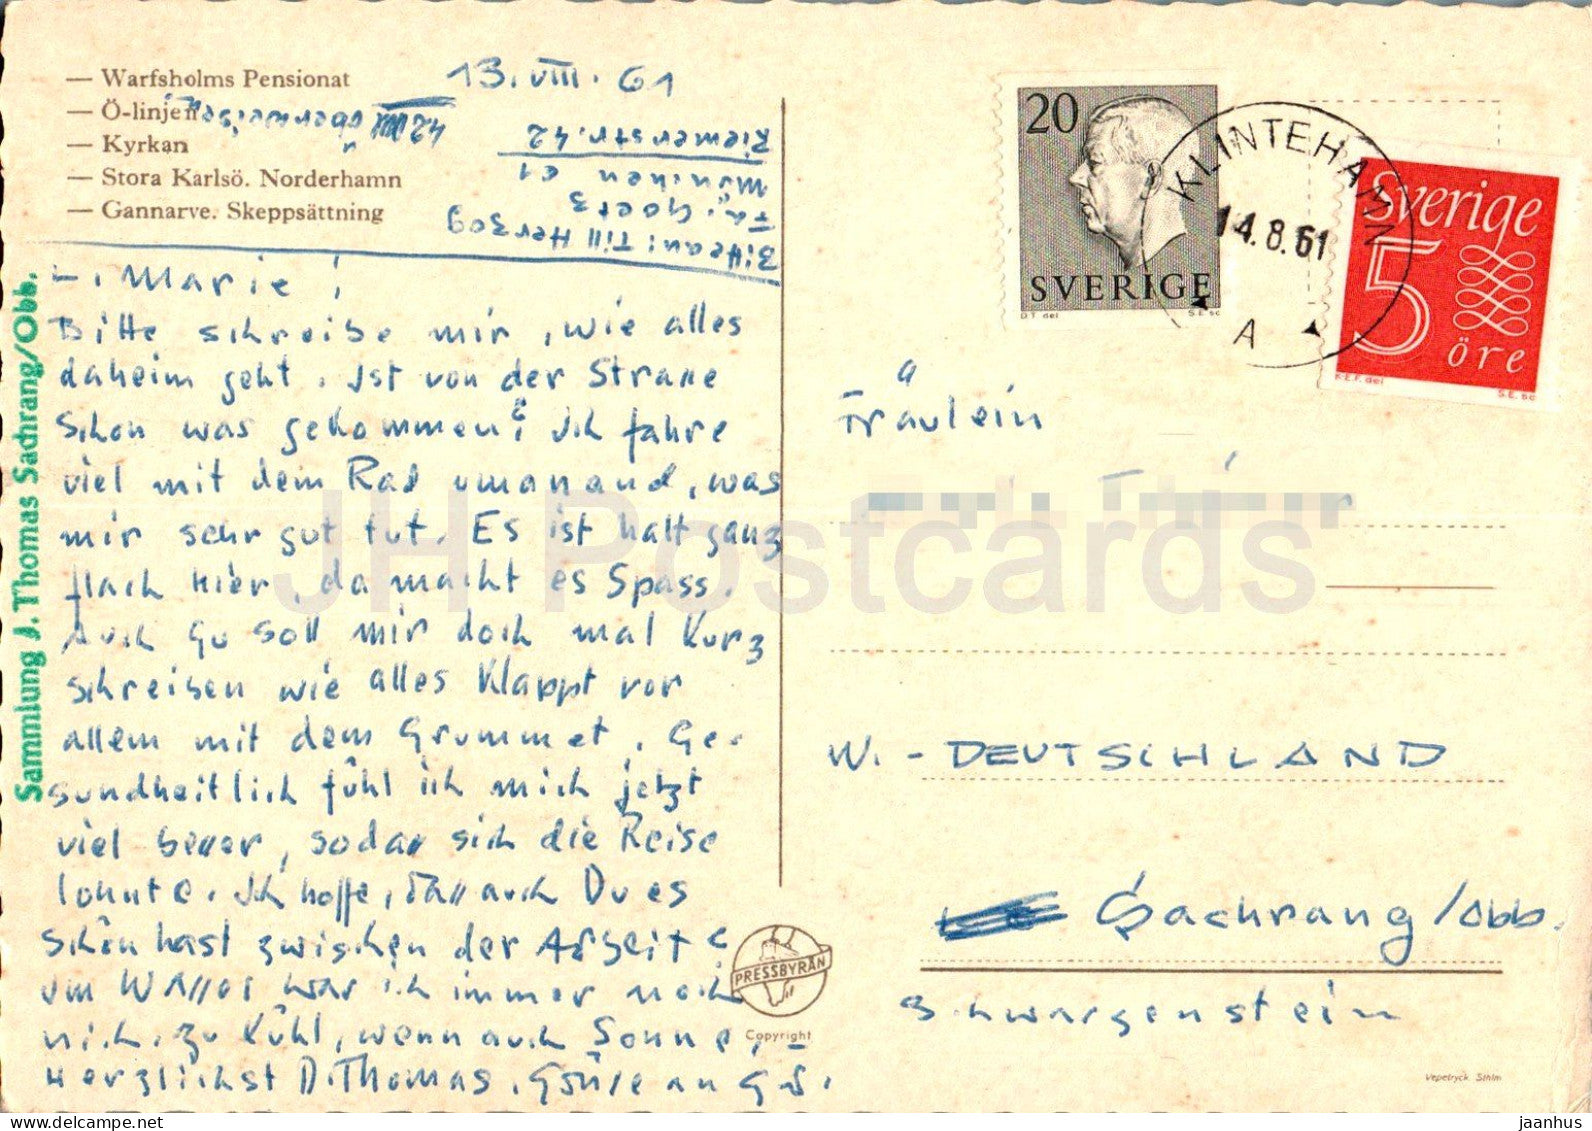 — Warfsholms Pensionat
— Ö-linjen
— Kyrkan
— Stora Karlsö. Norderhamn
— Gannarve. Skeppsättning
13. VIII. 61
Bitte an: Till Herzog
Fa. Goetz
München
Riemerstr. 42
L. Marie!
Bitte schreibe mir, wie alles
daheim geht. Ist von der Strasse
schon was gekommen? Ich fahre
viel mit dem Rad umanand, was
mir sehr gut tut. Es ist halt ganz
flach hier, da macht es Spass.
Auch Gu soll mir doch mal kurz
schreiben wie alles klappt vor
allem mit dem Grummet. Ge-
sundheitlich fühl ich mich jetzt
viel besser, sodass sich die Reise
lohnte. Ich hoffe, dass auch Du es
schön hast zwischen der Arbeit?
im Wasser war ich immer noch
nich. zu kühl, wenn auch Sonne, –
Herzlichst D. Thomas. Grüsse an
Sammlung J. Thomas Sachrang/Obb.
20
SVERIGE
D.T. del
S.E. sc
KLINTEHAMN
14.8.61
A
Sverige
5
öre
K.E.F. del
S.E. sc
Fräulein
W. - DEUTSCHLAND
Sachrang/Obb.
Schwarzenstein
PRESSBYRÅN
Copyright
Vepetryck Sthlm
JH Postcards
delcampe.net
jaanhus